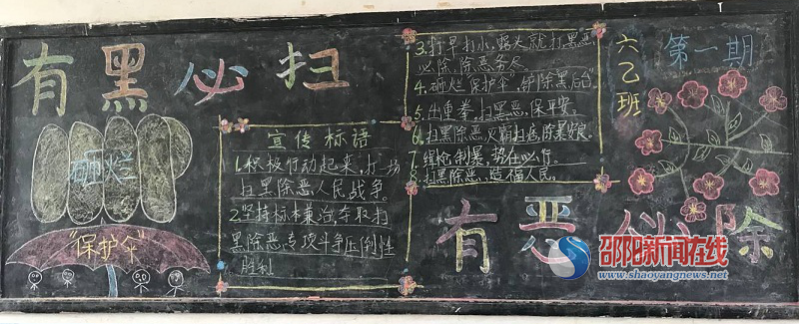 有黑必扫
砸烂
"保护伞"
宣传标语
1.积极行动起来,打一场
扫黑除恶人民战争。
2.坚持标本兼治夺取扫
黑除恶专项斗争压倒性
胜利
3.打早打小,露头就打,黑恶
必除,除恶务尽
4.砸烂"保护伞",铲除黑后台
5.出重拳,扫黑恶,保平安
6.扫黑除恶
势在必行
8.扫黑除恶,造福人民.
六乙班
第一期
有恶必除
邵阳新闻在线
www.shaoyangnews.net